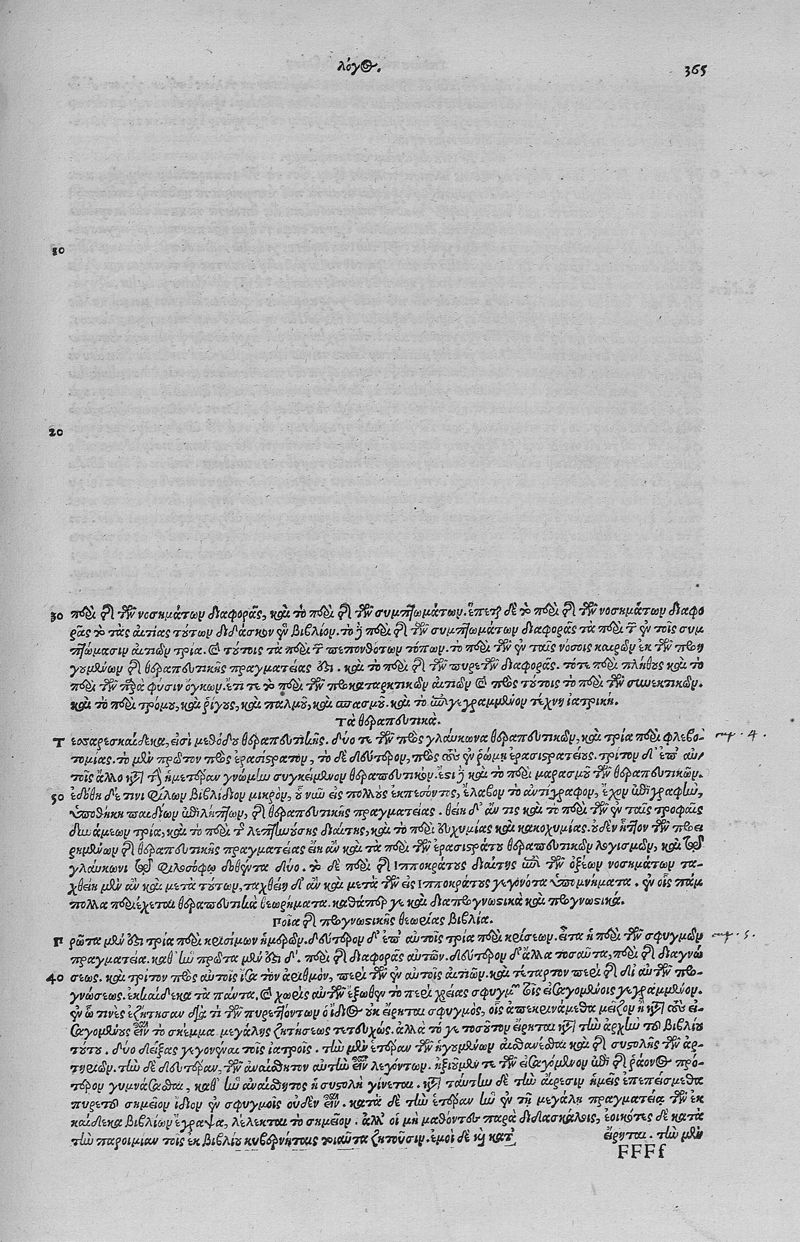 λόγος. 365
10
20
30 περὶ τῆς τῶν νοσημάτων διαφορᾶς, καὶ τὸ περὶ τῆς τῶν συμπτωμάτων. ἕπεται δὲ τὸ περὶ τῆς τῶν νοσημάτων διαφο
ρᾶς τὸ τὰς αἰτίας τούτων διδάσκον ἓν βιβλίον. τῷ δὲ περὶ τῆς τῶν συμπτωμάτων διαφορᾶς τὰ περὶ τῶν ἐν τοῖς συμ
πτώμασιν αἰτιῶν τρία. καὶ τούτοις τὰ περὶ τῶν πεπονθότων τόπων. τὸ περὶ τῶν ἐν ταῖς νόσοις καιρῶν ἐκ τῶν προη
γουμένων τῆς θεραπευτικῆς πραγματείας ἐστὶ. καὶ τὸ περὶ τῆς τῶν πυρετῶν διαφορᾶς. τό τε περὶ πλήθους καὶ τὸ
περὶ τῶν παρὰ φύσιν ὄγκων. ἔτι τε τὸ περὶ τῶν προκαταρκτικῶν αἰτιῶν καὶ πρὸς τούτοις τὸ περὶ τῶν συνεκτικῶν.
καὶ τὸ περὶ τρόμου, καὶ ῥίγους, καὶ παλμοῦ, καὶ σπασμοῦ. καὶ τὸ ἐπιγεγραμμένον τέχνη ἰατρική.
Τὰ θεραπευτικά.
Τ εσσαρεσκαίδεκα, εἰσὶ μεθόδου θεραπευτικῆς. δύο τε τῶν πρὸς γλαύκωνα θεραπευτικῶν, καὶ τρία περὶ φλεβο
τομίας. τὸ μὲν πρῶτον πρὸς ἐρασίστρατον, τὸ δὲ δεύτερον, πρὸς τοὺς ἐν ῥώμῃ ἐρασιστρατείους. τρίτον δ' ἐπ' αὐ
τοῖς ἄλλο κατὰ τὴν ἡμετέραν γνώμην συγκείμενον θεραπευτικόν. ἔστι δὲ καὶ τὸ περὶ μαρασμοῦ τῶν θεραπευτικῶν.
50 ἐδόθη δέ τινι φίλων βιβλίδιον μικρὸν, ὃ νῦν εἰς πολλοὺς ἐκπεσόντος, ἔλαβον τὸ ἀντίγραφον, ἔχον ἐπιγραφὴν,
ὑποθήκη παιδίων ἐπιλήπτων, τῆς θεραπευτικῆς πραγματείας. θείη δ' ἄν τις καὶ τὸ περὶ τῶν ἐν ταῖς τροφαῖς
δυνάμεων τρία, καὶ τὸ περὶ τῆς λεπτυνούσης διαίτης, καὶ τὸ περὶ εὐχυμίας καὶ κακοχυμίας. οὐδὲν ἧττον τῶν προει
ρημένων τῆς θεραπευτικῆς πραγματείας εἴη ἂν καὶ τὰ περὶ τῶν ἐρασιστράτου θεραπευτικῶν λογισμῶν, καὶ τῷ
γλαύκωνι τῷ φιλοσόφῳ δοθέντα δύο. τὸ δὲ περὶ τῆς ἱπποκράτους διαίτης ἐπὶ τῶν ὀξέων νοσημάτων τα
χθείη μὲν ἂν καὶ μετὰ τούτων, ταχθείη δ' ἂν καὶ μετὰ τῶν εἰς ἱπποκράτους γεγονότα ὑπομνήματα. ἐν οἷς πάμ
πολλα περιέχεται θεραπευτικὰ θεωρήματα. καθάπερ γε καὶ διαπρογνωστικὰ καὶ προγνωστικά.
Ποῖα τῆς προγνωστικῆς θεωρίας βιβλία.
Π ρῶτα μὲν ἐστὶ τρία περὶ κρισίμων ἡμερῶν. δεύτερον δ' ἐπ' αὐτοῖς τρία περὶ κρίσεων. εἶτα ἡ περὶ τῶν σφυγμῶν
πραγματεία. καθ' ἣν πρῶτα μὲν ἐστὶ δ'. περὶ τῆς διαφορᾶς αὐτῶν. δεύτερον δ' ἄλλα τοσαῦτα, περὶ τῆς διαγνώ
40 σεως. καὶ τρίτον πρὸς αὐτοῖς ἴσα τὸν ἀριθμὸν, περὶ τῶν ἐν αὐτοῖς αἰτιῶν. καὶ τέταρτον περὶ τῆς δι' αὐτῶν προ
γνώσεως. ἑκκαίδεκα τὰ πάντα, καὶ χωρὶς αὐτῶν ἔξωθεν τὸ περὶ χρείας σφυγμῶν τοῖς εἰσαγομένοις γεγραμμένον.
ἐν ᾧ τινὲς ἐζήτησαν διὰ τί τῶν πυρεττόντων ὁ ἴδιος οὐκ εἴρηται σφυγμὸς, οἷς ἀπεκρινάμεθα μεῖζον ἢ κατὰ τοὺς εἰ
σαγομένους εἶναι τὸ σκέμμα μεγάλης ζητήσεως τετυχώς. ἀλλὰ τό γε τοσοῦτον εἴρηται κατὰ τὴν ἀρχὴν τοῦ βιβλίου
τούτου. δύο δείξας γεγονέναι τοῖς ἰατροῖς. τὴν μὲν ἑτέραν τῶν ἡγουμένων αἰσθάνεσθαι καὶ τῆς συστολῆς τῶν ἀρ
τηριῶν. τὴν δὲ δευτέραν, τῶν ἀναίσθητον αὐτὴν εἶναι λεγόντων. ἠξιοῦμέν τε τῶν εἰσαγόμενον ἐπὶ τῆς ῥᾷονος πρό
τερον γυμνάσασθαι, καθ' ἣν ἀναίσθητος ἡ συστολὴ γίνεται. κατὰ ταύτην δὲ τὴν αἵρεσιν ἡμεῖς ἐπεπείσμεθα
πυρετοῦ σημεῖον ἴδιον ἐν σφυγμοῖς οὐδὲν εἶναι. κατὰ δὲ τὴν ἑτέραν ἣν ἐν τῇ μεγάλῃ πραγματείᾳ τῶν ἑκ
καίδεκα βιβλίων ἔγραψα, λέλεκται τὸ σημεῖον. ἀλλ' οἱ μὴ μαθόντες παρὰ διδασκάλοις, ἐοικότες δὲ κατὰ
τὴν παροιμίαν τοῖς ἐκ βιβλίου κυβερνήταις τοιαῦτα ζητοῦσιν. ἐμοὶ δὲ καὶ κατ' εἴρηται. τὴν μὲν
FFFf